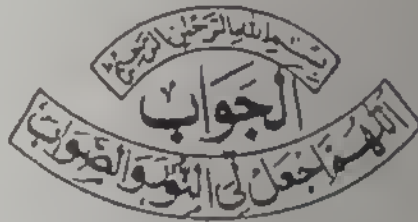 بِسْمِ اللهِ الرَّحْمٰنِ الرَّحِيْمِ
اَلْجَوَابُ
اَللّٰهُمَّ اجْعَلْ لِّیْ النُّوْرَ وَالصَّوَابَ